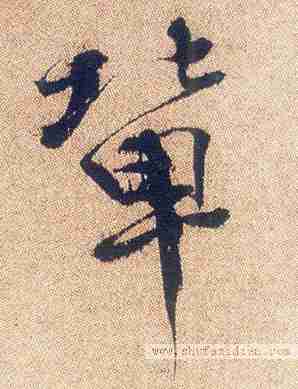 輩
www.shufazidian.com